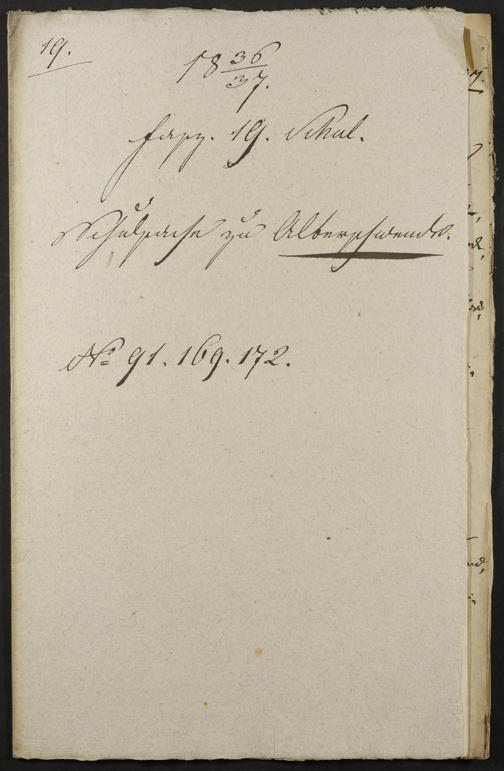 19.
18 36/37.
Fasz. 19. Schul.
Schulsache zu Alberschwende.
No 91. 169. 172.